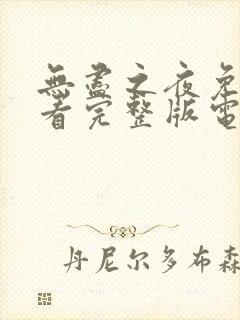 無盡之夜免
看完整版電
丹尼尔多布森